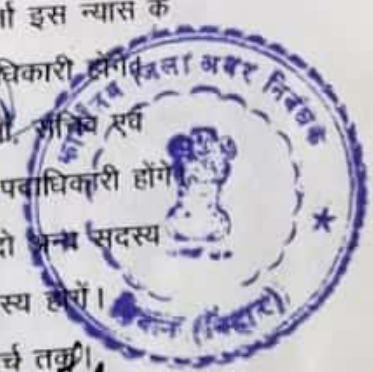 र्ता इस न्यास के
धिकारी होंगे।
सचिव एवं
पदाधिकारी होंगे
दो अन्य सदस्य
स्य होंगे।
र्च तक।
कार्यालय जिला अवर निबंधक
(बिहार)